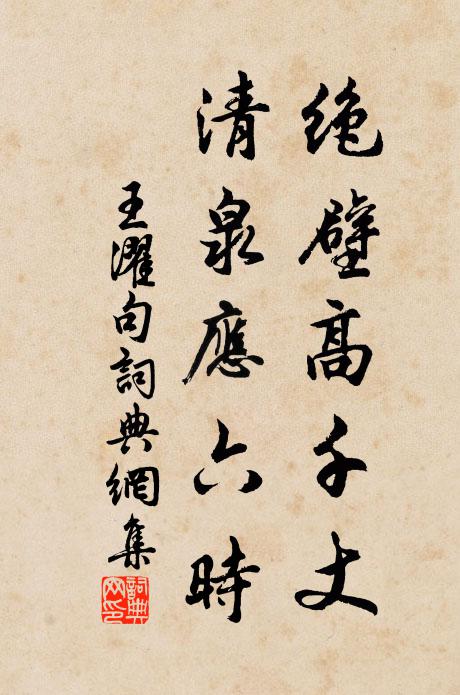 绝壁高千丈
清泉應六時
王濯句詞典網集
詞典
网印